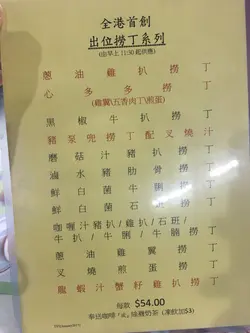 全港首創
出位撈丁系列
(由早上 11:30 起供應)
蔥油雞扒撈丁
心多多撈丁
(雞翼\五香肉丁\煎蛋)
黑椒牛扒撈丁
豬泵兜撈丁配叉燒汁
蘑菇汁豬扒撈丁
滷水豬肋骨撈丁
鮮白菌牛脷撈丁
鮮白菌石班撈丁
咖喱汁豬扒/雞扒/石班/
牛扒/牛脷/牛腩撈丁
蔥油雞翼撈丁
叉燒煎蛋撈丁
龍蝦汁蟹籽雞扒撈丁
每款 $54.00
奉送咖啡「or」絲襪奶茶 (凍飲加$3)